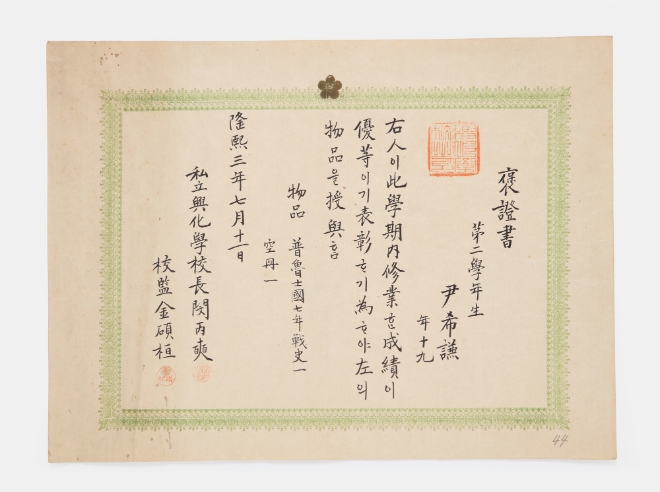 褒證書
第二學年生
尹希謙
年十九
右人이此學期內修業호成績이
優等이기表彰하기爲하야左의
物品을授與홈
物品 普魯士國七年戰史一
空冊一
隆熙三年七月十一日
私立興化學校長閔丙奭
校監金碩桓
44